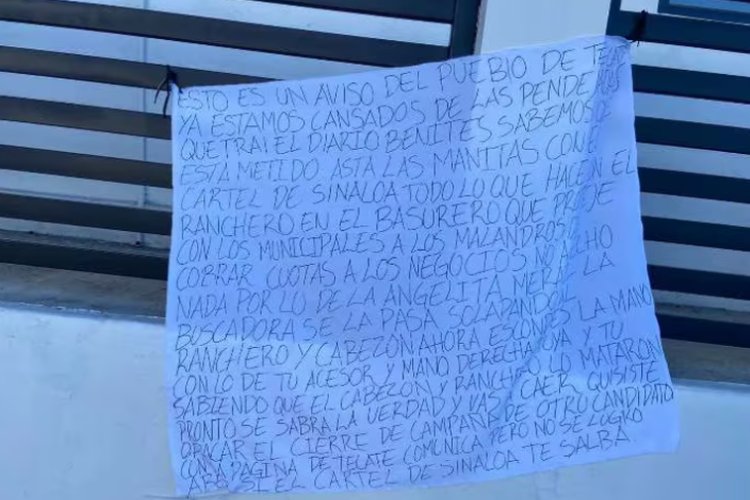 ESTO ES UN AVISO DEL PUEBLO DE
YA ESTAMOS CANSADOS DE LAS
QUE TRAI EL DIARIO BENITES SABEMOS
ESTA METIDO ASTA LAS MANITAS CON EL
CARTEL DE SINALOA TODO LO QUE HACEN EL
RANCHERO EN EL BASURERO QUE
CON LOS MUNICIPALES A LOS MALANDROS
COBRAR CUOTAS A LOS NEGOCIOS NO
NADA POR LO DE LA ANGELITA LA
BUSCADORA SE LA PASA
RANCHERO Y CABEZON AHORA ESCONDES LA MANO
CON LO DE TU ACESOR Y MANO DERECHA Y TU
SABIENDO QUE EL CABEZON Y RANCHERO LO MATARON
PRONTO SE SABRA LA VERDAD Y VAS CAER QUISISTE
OPACAR EL CIERRE DE CAMPAÑA DE OTRO CANDIDATO
CON PAGINA DE TECATE COMUNICA PERO NO SE LOGRO
SI EL CARTEL DE SINALOA TE SALBA.